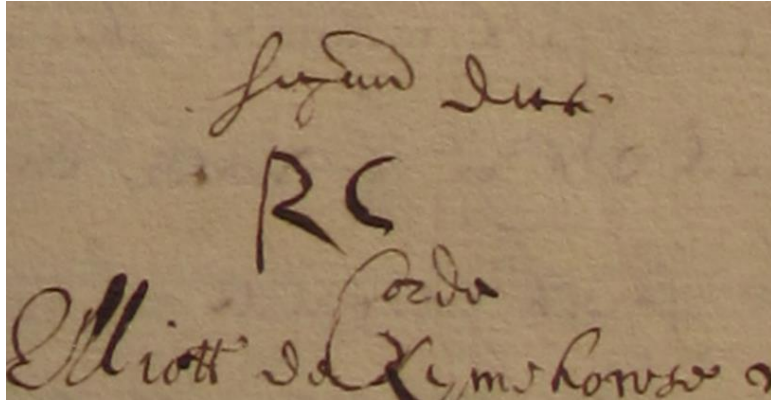 signum dict
R C
Corda
Elliott de Kymshowse